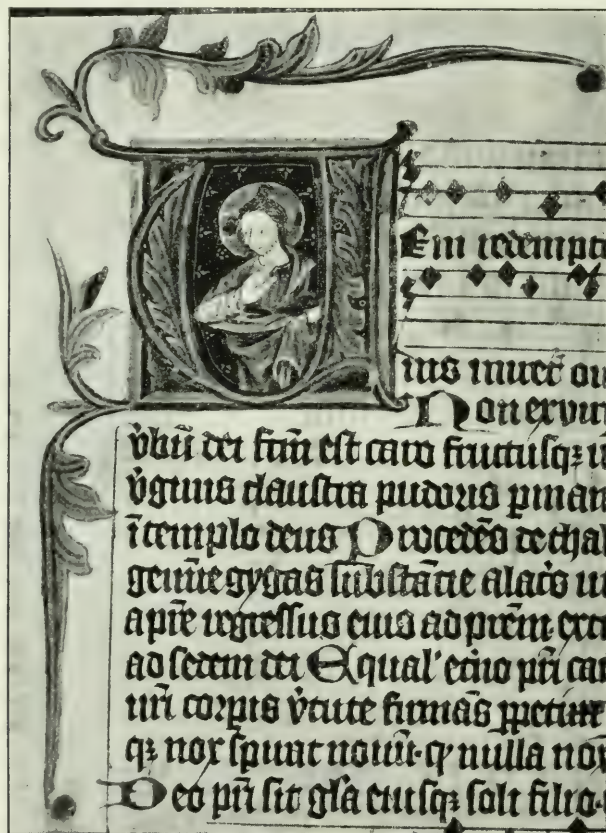 Em redempto
tius mirēt ou
Non ex viri
v̄bū dei fc̄m est caro fructusqꝫ u
v̄ginis claustra pudoris pman
ī templo deus Procedēs de thal
gemīe gygas substātie alac̓s ut
a pr̄e regressus eius ad pr̄em exc
ad sedem dei Equal' et̓no pr̄i car
nr̄i corpis v̓tute firmās ꝑpetim
qꝫ nox spirat nouū qꝫ nulla nox
Deo pr̄i sit gl̓a eiusqꝫ soli filio